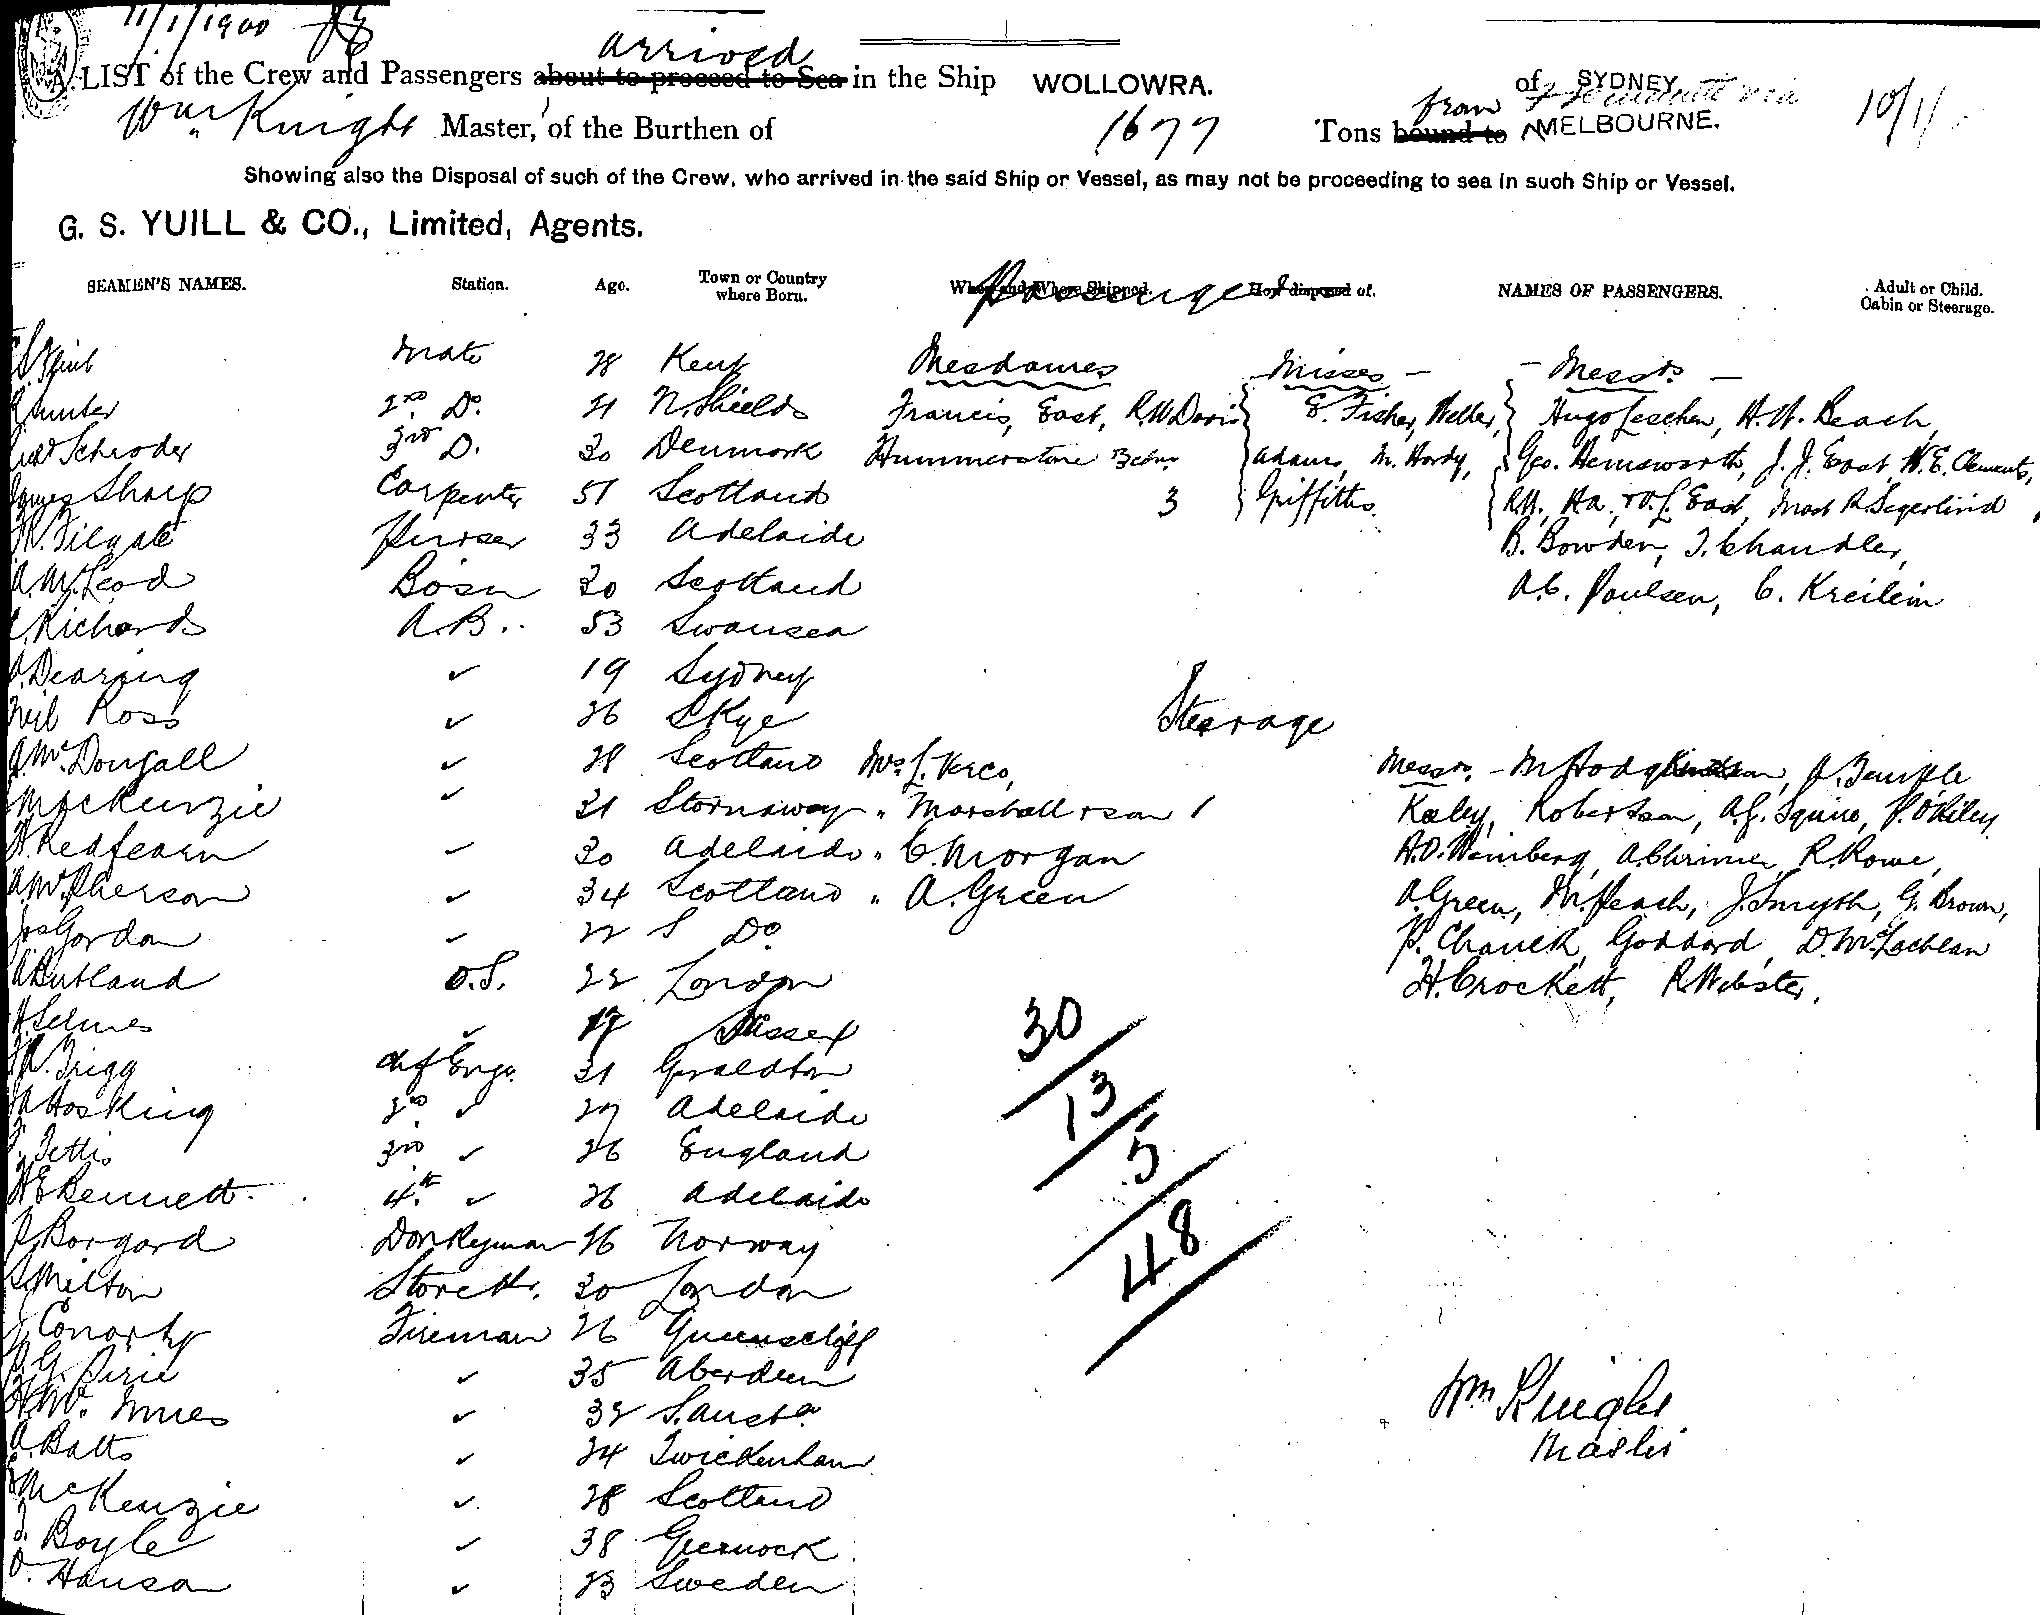 11/1/1900
arrived
A LIST of the Crew and Passengers about to proceed to Sea in the Ship WOLLOWRA. of SYDNEY
Wm Knight Master, of the Burthen of 1677 Tons bound to from MELBOURNE. via 10/1/
Showing also the Disposal of such of the Crew, who arrived in the said Ship or Vessel, as may not be proceeding to sea in such Ship or Vessel.
G. S. YUILL & CO., Limited, Agents.
SEAMEN'S NAMES. Station. Age. Town or Country where Born. When and Where Shipped. How disposed of. NAMES OF PASSENGERS. Adult or Child. Cabin or Steerage.
Passengers
Mate 28 Kent Mesdames Misses - - Messrs -
Hunter 2nd Do. 21 N. Shields Francis, East, R.W. Davis E. Fisher, Weller, Hugo Leschen, H. W. Beach,
Schroder 3rd D. 30 Denmark Hummerstone Adams, M. Hardy, Geo. Hemsworth, J. J. East, W. E. Clements,
James Sharp Carpenter 51 Scotland 3 Griffiths. East, R. Segerlind
Filgate Purser 33 Adelaide B. Bowden, T. Chandler,
McLeod Bosn 30 Scotland A.C. Paulsen, C. Kreilein
Richards A.B. 53 Swansea
Dearing ✓ 19 Sydney
Neil Ross ✓ 26 Skye Steerage
A. McDougall ✓ 28 Scotland Mrs L. Verco, Messrs. - M Hodgkinson,
McKenzie ✓ 21 Stornaway " Marshall & son 1 Kaley, Robertson, A.J. Squire, P. O'Riley
Redfearn ✓ 30 Adelaide " C. Morgan A.O. Weinberg, R. Rowe,
A. McPherson ✓ 34 Scotland " A. Green A. Green, M. Peach, J. Smyth, G. Brown,
Jas Gordon ✓ 22 S Do P. Goddard, D. McLachlan
A Butland O.S. 22 London H. Crockett, R Webster,
Selmes ✓ 17 Sussex
Trigg Chf Engr. 31 Geraldton
Hosking 2nd ✓ 27 Adelaide
Tettis 3rd ✓ 26 England
Bennett 4th ✓ 26 Adelaide
Borgard Donkeyman 26 Norway
Milton Storekr. 20 London
Conarty Fireman 26 Queenscliff
Pirie ✓ 35 Aberdeen
McInnes ✓ 32 S. Austa
Batts ✓ 24 Twickenham
McKenzie ✓ 28 Scotland
Boyle ✓ 38 Greenock
Hanson ✓ 23 Sweden
30
13
5
48
Wm Knight
Master